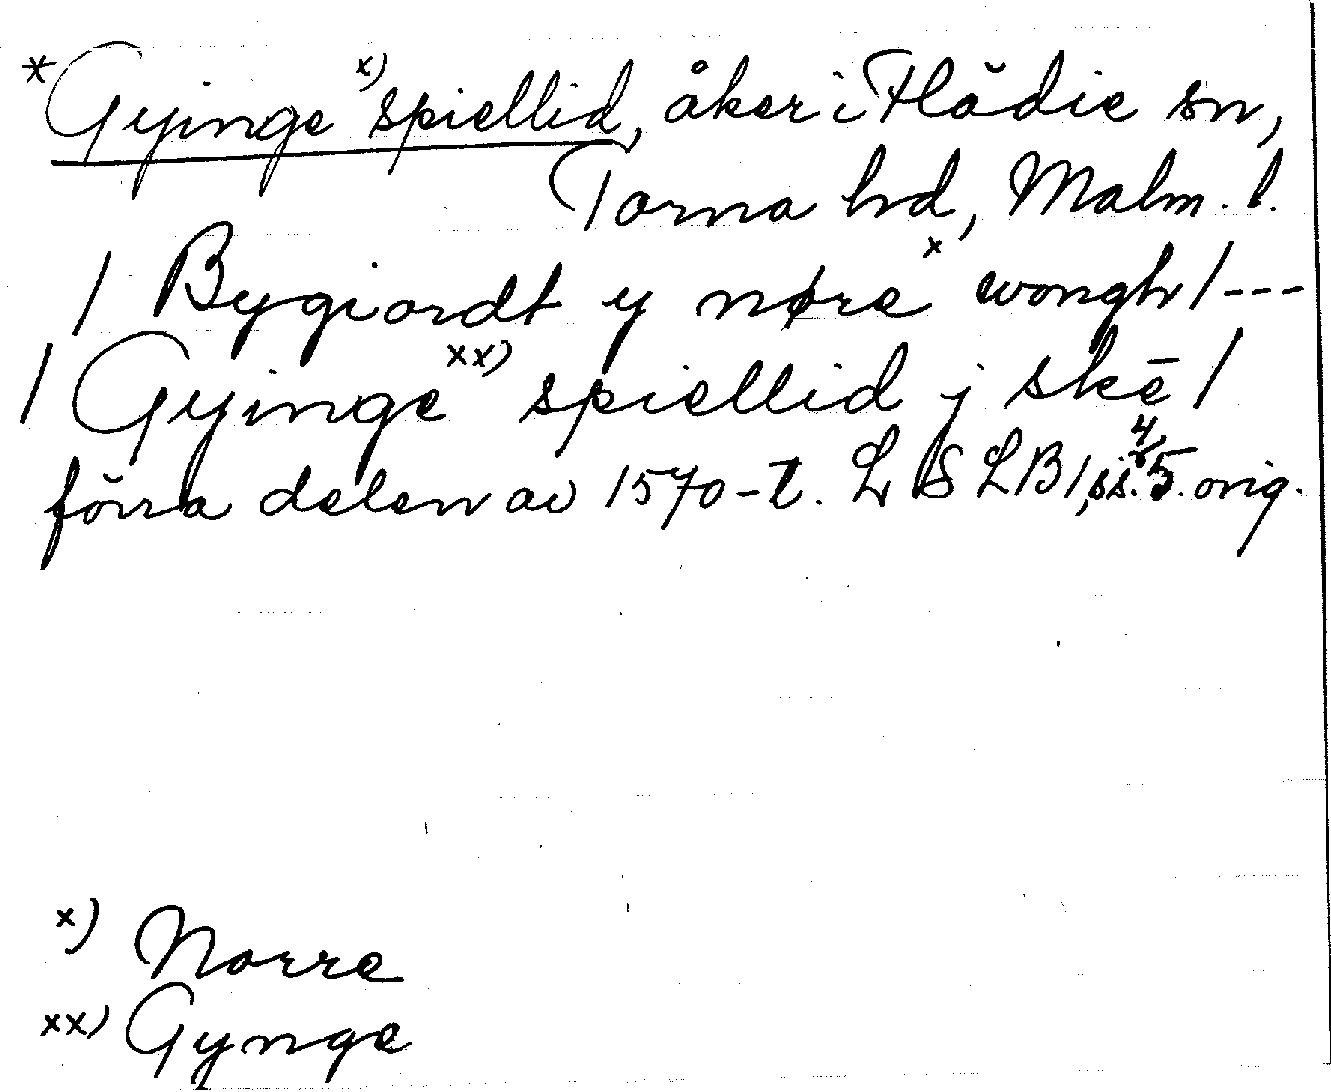 * Gyinge x) spiellid, åker i Flädie sn,
Torna hd, Malm. l.
/ Bygiordt y nøre x wongh / ---
/ Gyinge xx) spiellid j skē /
förra delen av 1570-t. LSLB 1, ss. 4, 5. orig.
x) Norre
xx) Gynge